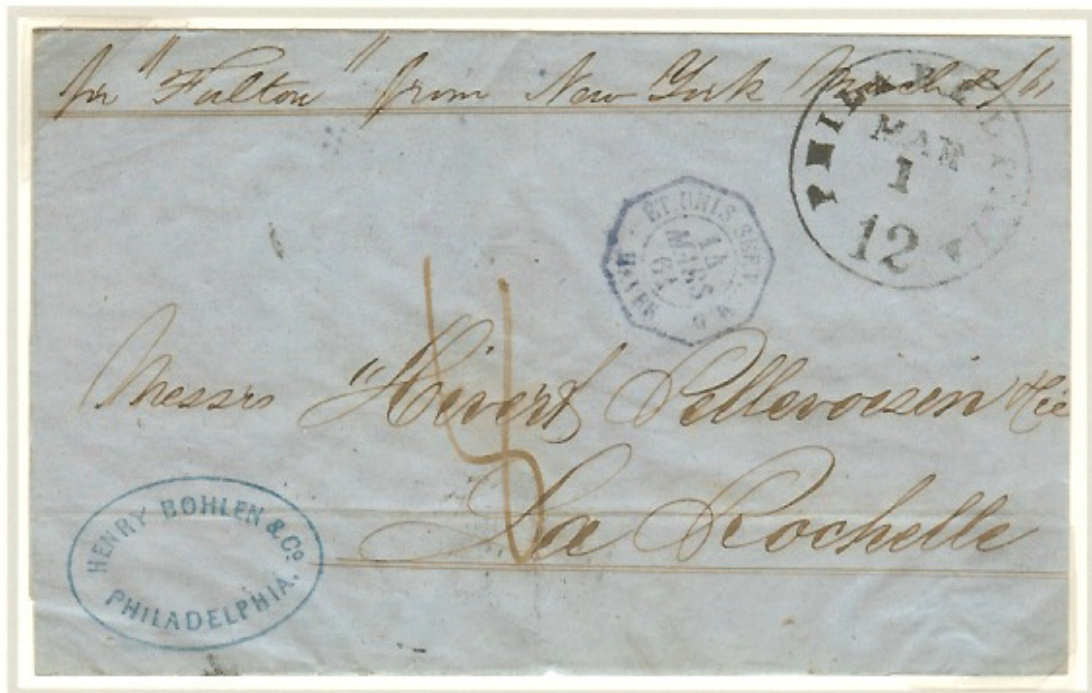 pr "Fulton" from New York March 2/61
PHILADELPHIA
MAR
1
12
ET. UNIS SERV.
14
MARS
61
HAVRE
Messrs Hivert Pellevoisin & Cie
La Rochelle
HENRY BOHLEN & Co.
PHILADELPHIA.